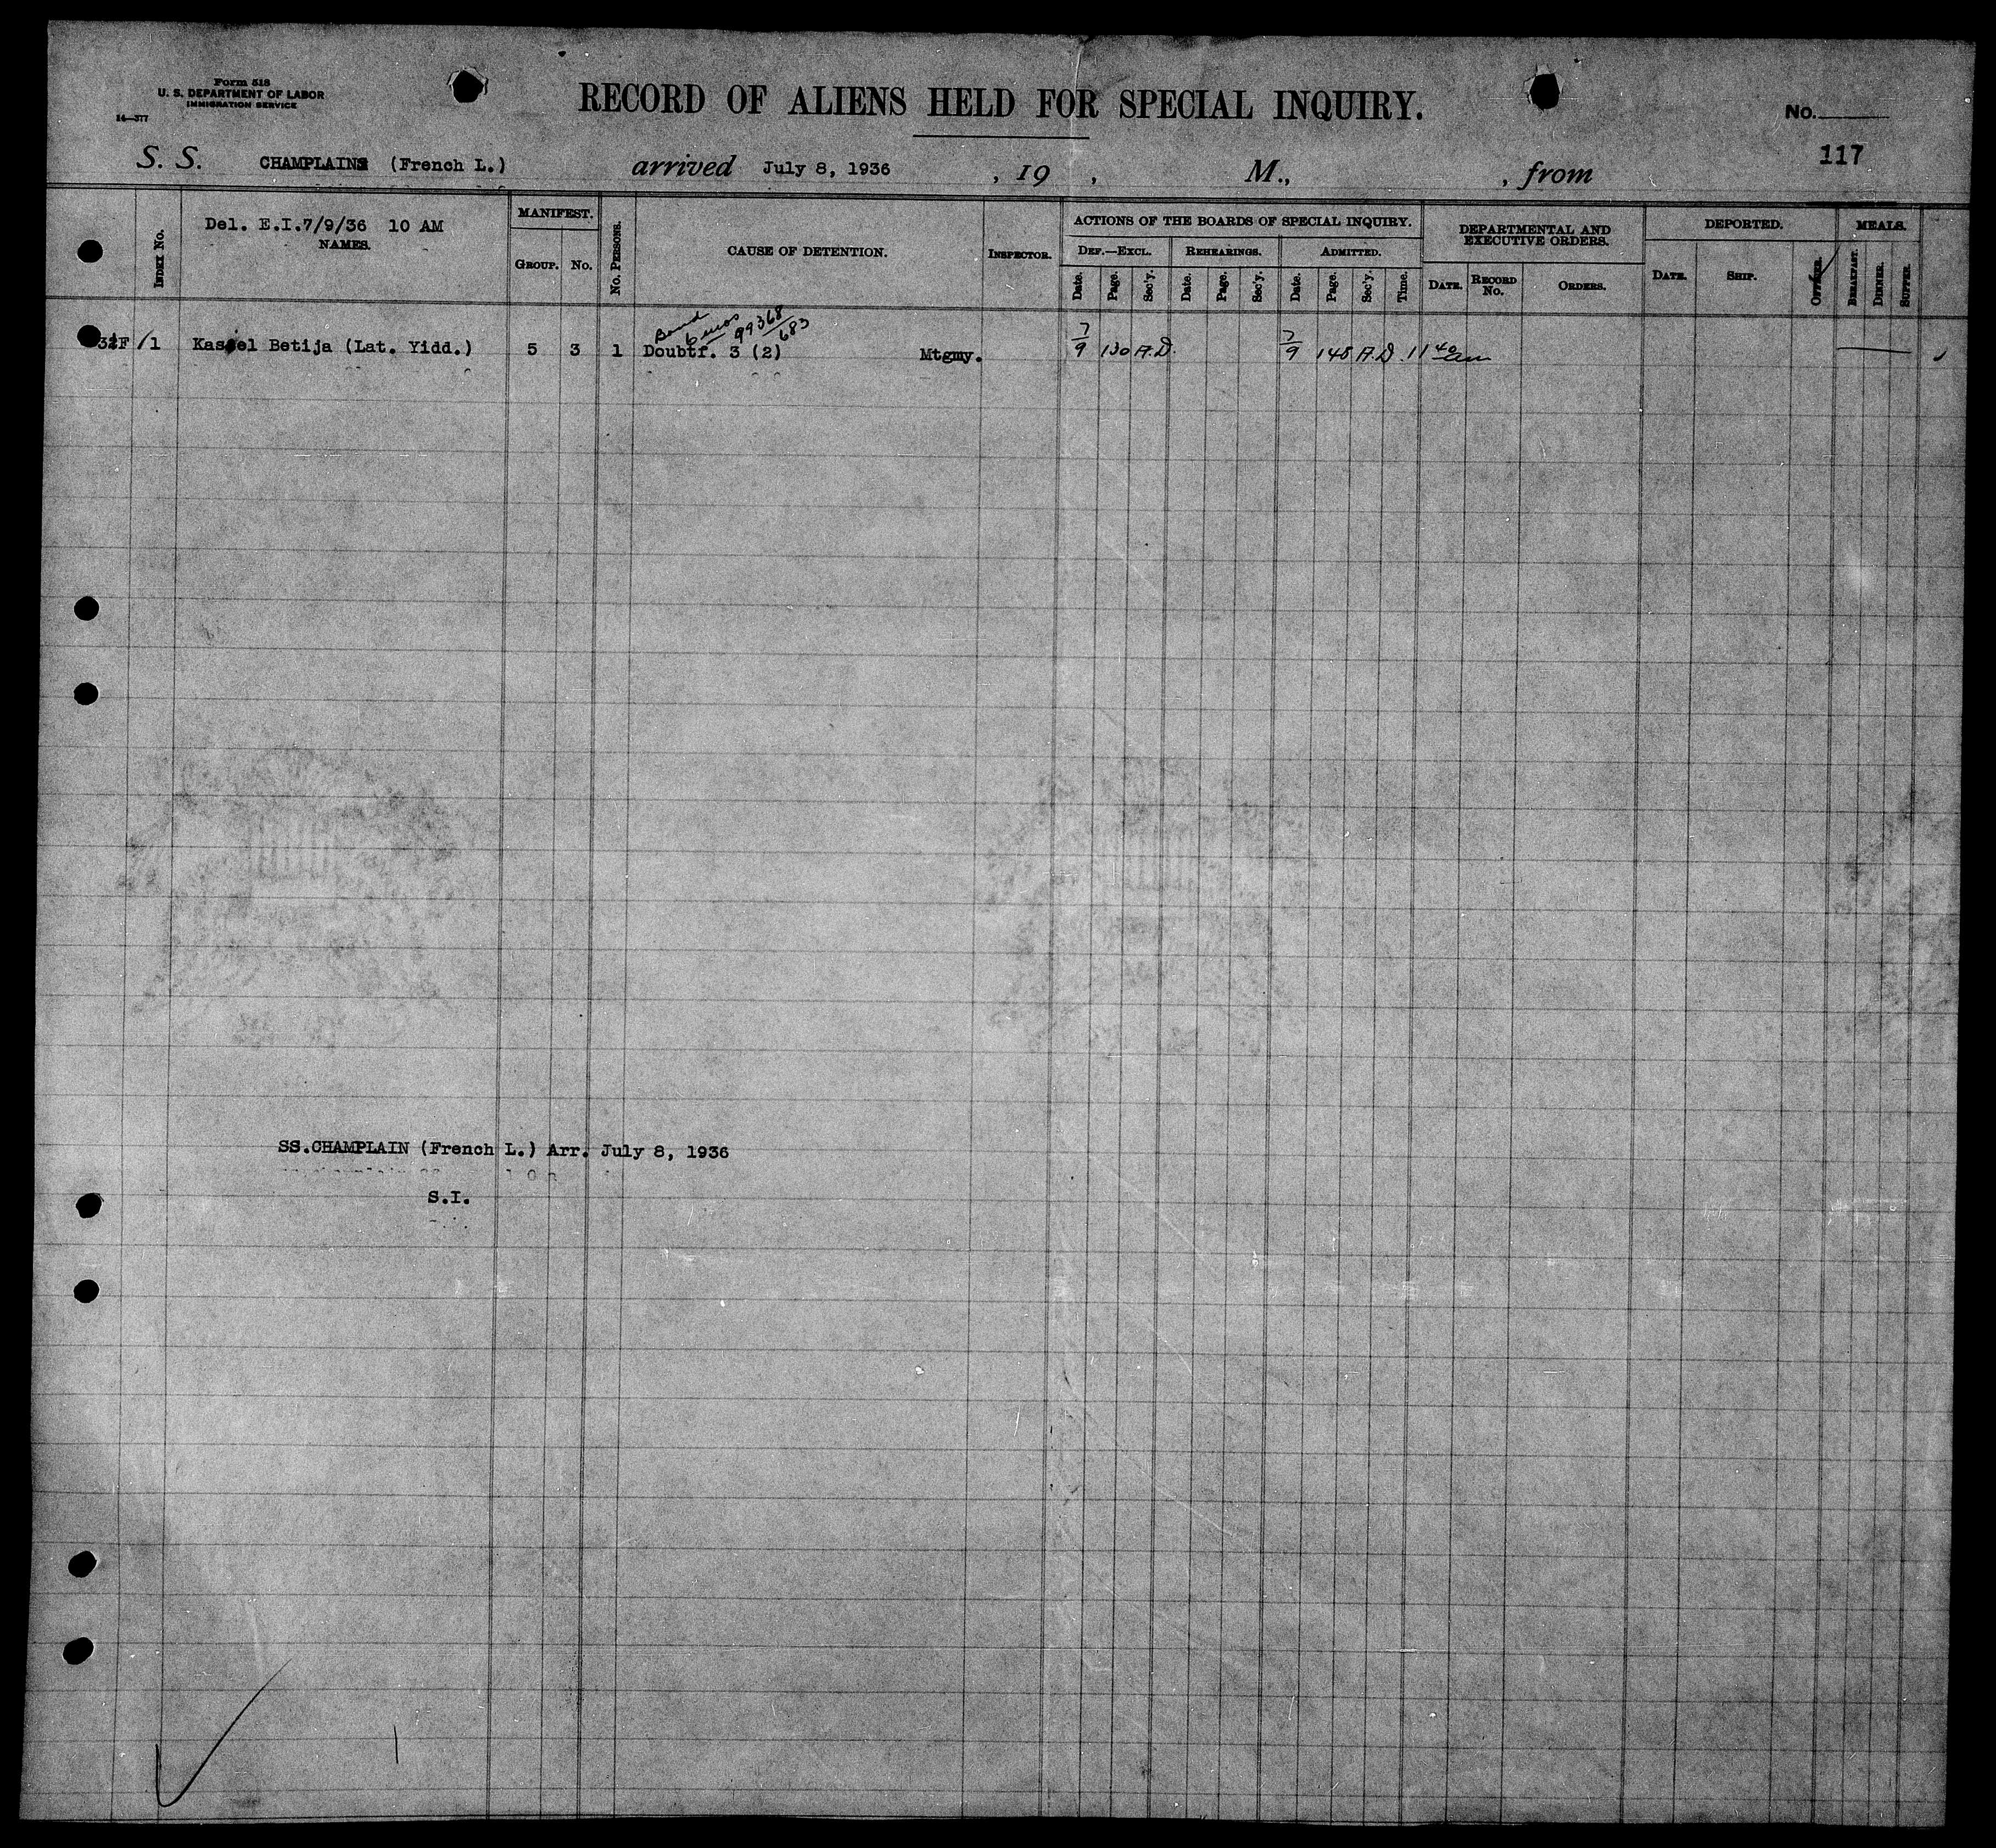 Form 518
U. S. DEPARTMENT OF LABOR
IMMIGRATION SERVICE
14—377
RECORD OF ALIENS HELD FOR SPECIAL INQUIRY.
No.
117
S. S. CHAMPLAIN (French L.) arrived July 8, 1936 , 19 , M., , from
Del. E.I.7/9/36 10 AM
INDEX No.
NAMES.
MANIFEST.
GROUP. No.
No. PERSONS.
CAUSE OF DETENTION.
INSPECTOR.
ACTIONS OF THE BOARDS OF SPECIAL INQUIRY.
DEF.—EXCL. REHEARINGS. ADMITTED.
Date. Page. Sec'y. Date. Page. Sec'y. Date. Page. Sec'y. Time.
DEPARTMENTAL AND
EXECUTIVE ORDERS.
DATE. RECORD No. ORDERS.
DEPORTED.
DATE. SHIP. OFFICER.
MEALS.
BREAKFAST. DINNER. SUPPER.
Bond
6 mos 99368/683
1 Kassel Betija (Lat. Yidd.) 5 3 1 Doubtf. 3 (2) Mtgmy. 7/9 130 A.D. 7/9 148 A.D. 11 40 am
SS.CHAMPLAIN (French L.) Arr. July 8, 1936
S.I.